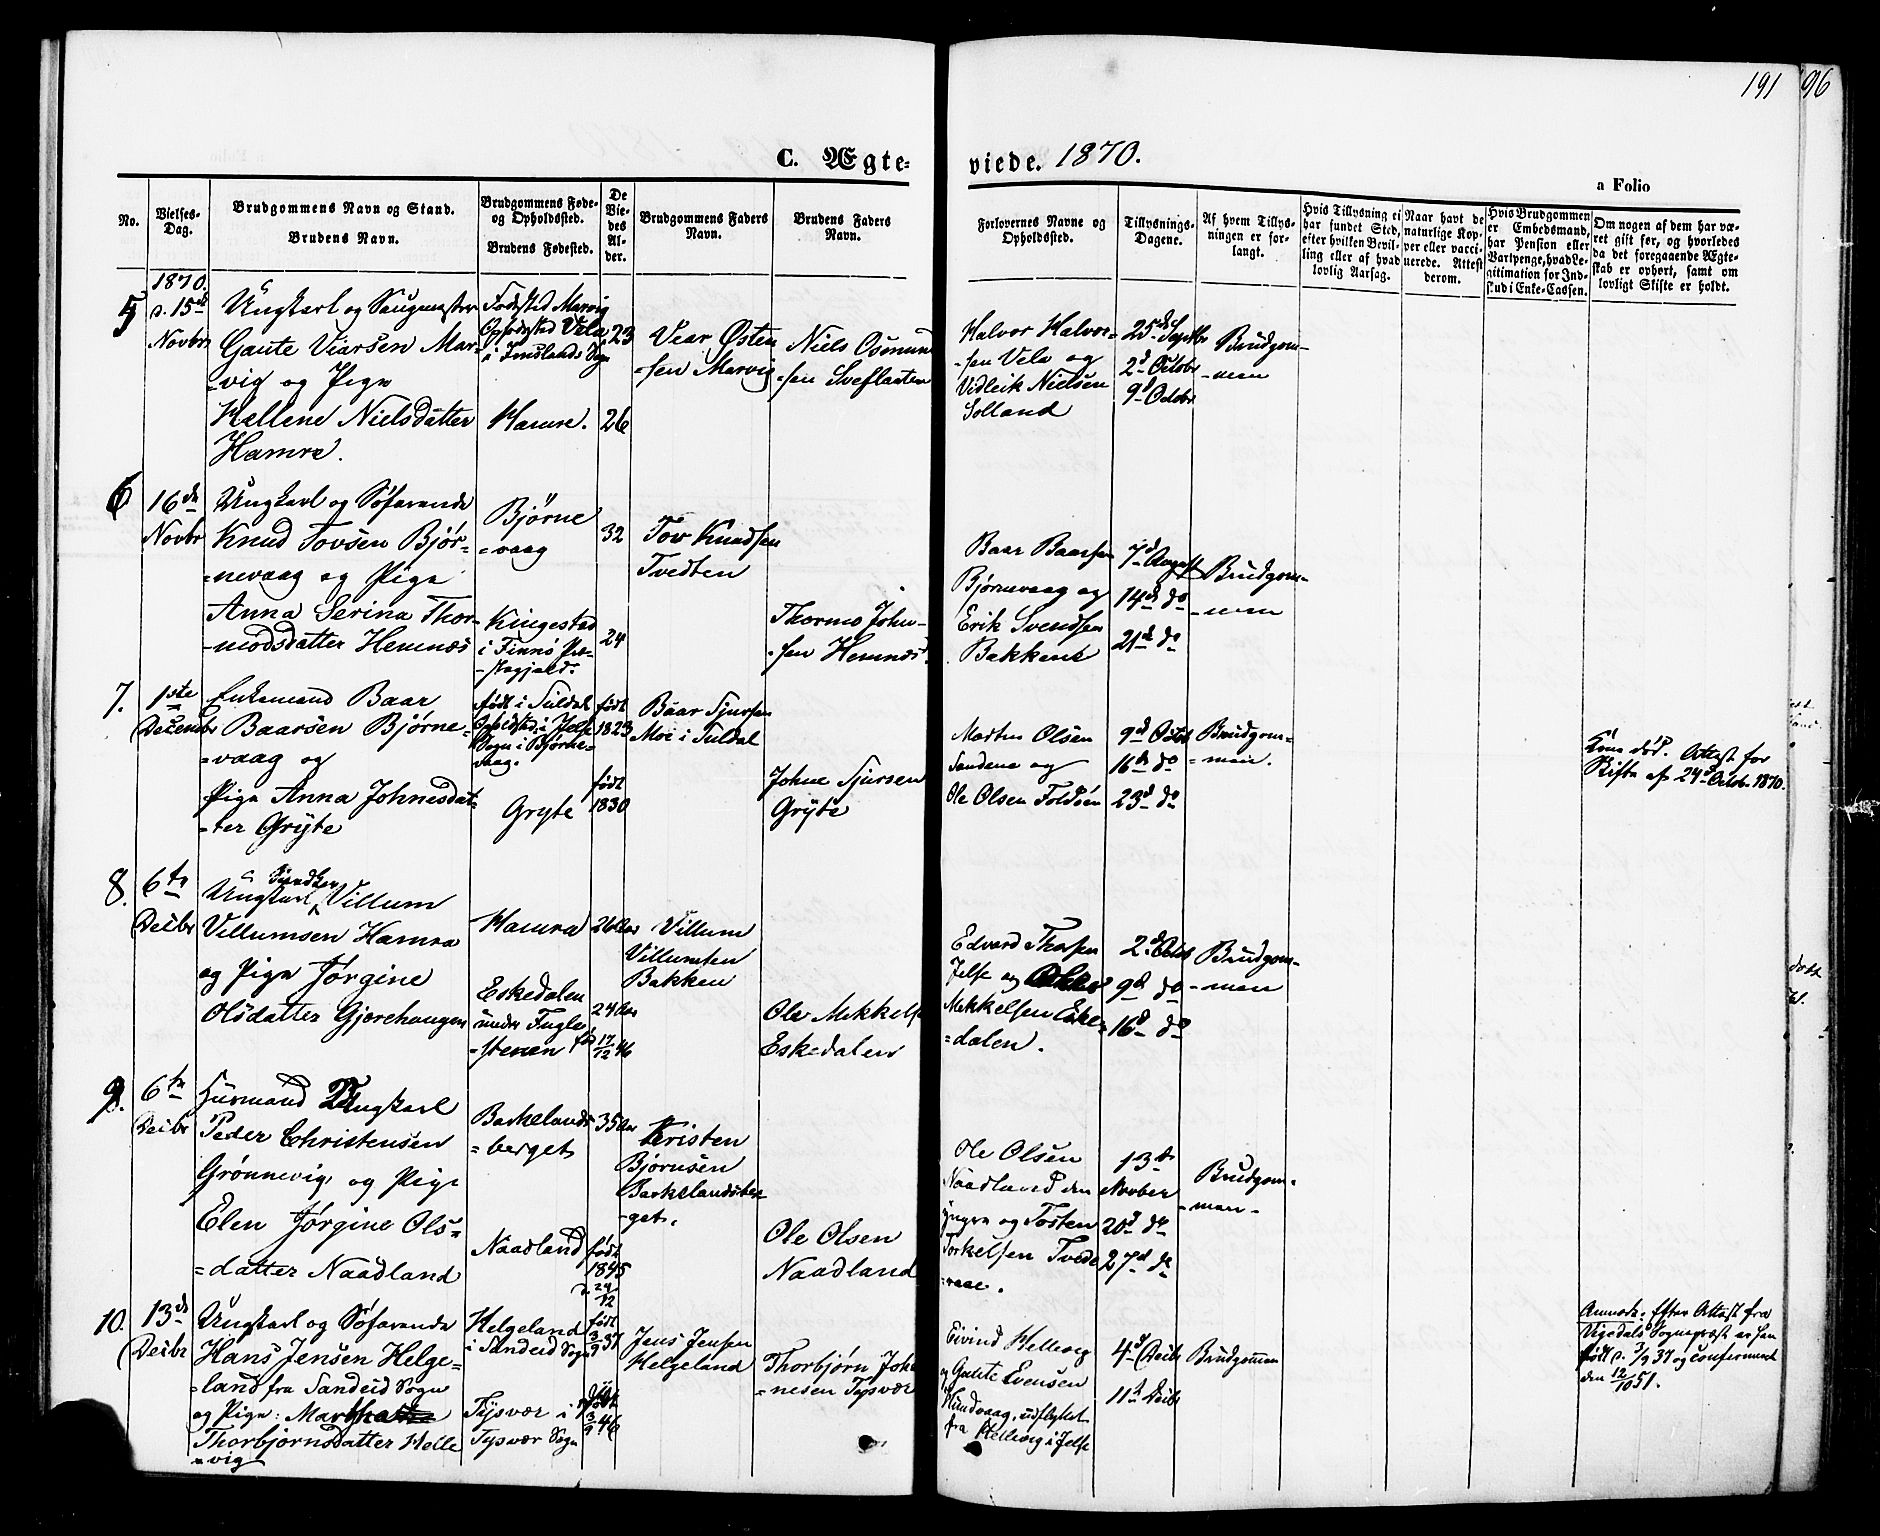 191
96
C. Ægte-
viede. 1870.
a Folio
No.
Vielses-
Dag.
Brudgommens Navn og Stand.
Brudens Navn.
Brudgommens Føde-
og Opholdssted.
Brudens Fødested.
De
Vie-
des
Al-
der.
Brudgommens Faders
Navn.
Brudens Faders
Navn.
Forlovernes Navne og
Opholdssted.
Tillysnings-
Dagene.
Af hvem Tillys-
ningen er for-
langt.
Hvis Tillysning ei
har fundet Sted,
efter hvilken Bevil-
ling eller af hvad
lovlig Aarsag.
Naar havt de
naturlige Kop-
per eller vacci-
nerede. Attest
derom.
Hvis Brudgommen
er Embedsmand,
har Pension eller
Vartpenge, hvad Le-
gitimation for Ind-
skud i Enke-Cassen.
Om nogen af dem har væ-
ret gift før, og hvorledes
da det foregaaende Ægte-
skab er ophørt, samt om
lovligt Skifte er holdt.
1870.
5
d. 15de
Novbr
Ungkarl og Saugmester
Gaute Viarsen Mar-
-vig og Pige
Hellene Nielsdatter
Hamre.
Fødested Marvig
Opholdsted Vela
i Imslands Sogn
Hamre.
23
26
Vear Østen
-sen Marvig
Niels Osmund
-sen Sveflaaten
Halvor Halvor-
-sen Vela og
Vidleik Nielsen
Solland
25de Septbr
2d Octobr
9d Octobr
Brudgom-
-men
6
16de
Novbr
Ungkarl og Søfarende
Knud Tovsen Bjør-
-nevaag og Pige
Anna Serina Thor-
-modsdatter Hemnæs
Bjørne
-vaag
Kingestad
i Finnø Præ-
-stegjeld.
32
24
Tov Knudsen
Tvedten
Thormo John-
-sen Hemnæs.
Baar Baarsen
Bjørnevaag og
Erik Svendsen
Bakkene
7d August
14de do
21de do
Brudgom-
-men
7.
1ste
Decembr
Enkemand Baar
Baarsen Bjørne-
-vaag og
Pige Anna Johnesdat-
-ter Gryte
født i Suldal
Opholdsted i Jelse
Sogn i Bjørne-
vaag.
Gryte
født
1823
født
1830
Baar Sjursen
Moe i Suldal
Johne Sjursen
Gryte
Morten Olsen
Sandene og
Ole Olsen Foldøen
9d Octbr
16de do
23d do
Brudgom-
-men.
Kone død. Attest for
Skifte af 24d Octob. 1870.
8.
6te
Decbr
Ungkarl Villum
Villumsen Hamra
og Pige Jørgine
Olsdatter Gjerehaugen
Hamra
Eskedalen
under Fugle
-stenen fød
26 Aar
24 Aar
17/12 46
Villum
Villumsen
Bakken
Ole Mekkels
Eskedalen
Edvard Thorsen
Jelse og
Mekkelsen Eske-
-dalen.
2d Octbr
9d do
16d do
Brudgom-
-men
9.
6te
Decbr
Huusmand Ungkarl
Peder Christensen
Grønnevig og Pige
Elen Jørgine Ols-
-datter Naadland
Barkelands
-berget
Naadland
35 Aar
født
1845
d. 24/12
Kristen
Bjørnsen
Barkelandsber
-get.
Ole Olsen
Naadland
Ole Olsen
Naadland den
yngre og Tosten
Torkelsen Tvede
-vaae.
13de
November
20d do
27d do
Brudgom-
-men-
10.
13de
Decbr
Ungkarl og Søfarende
Hans Jensen Helge-
-land fra Sandeid Sogn
og Pige: Martha
Thorbjørnsdatter Helle
-vig
Helgeland
i Sandeid Sogn
Tysvær i
Tysvær Sogn
født
3/9 37
født
3/9 46
Jens Jensen
Helgeland
Thorbjørn Joh
-nesen Tysvær
Eivind Hellevig
og Gaute Evensen
Hundvaag, udflyttet
fra Hellevig i Jelse
4d Decbr
11te Decbr
Brudgommen
Anmærk: Efter Attest fra
Vigedals Sognepræst er han
født d. 3/9 37 og confirmeret
den 12/10 51.